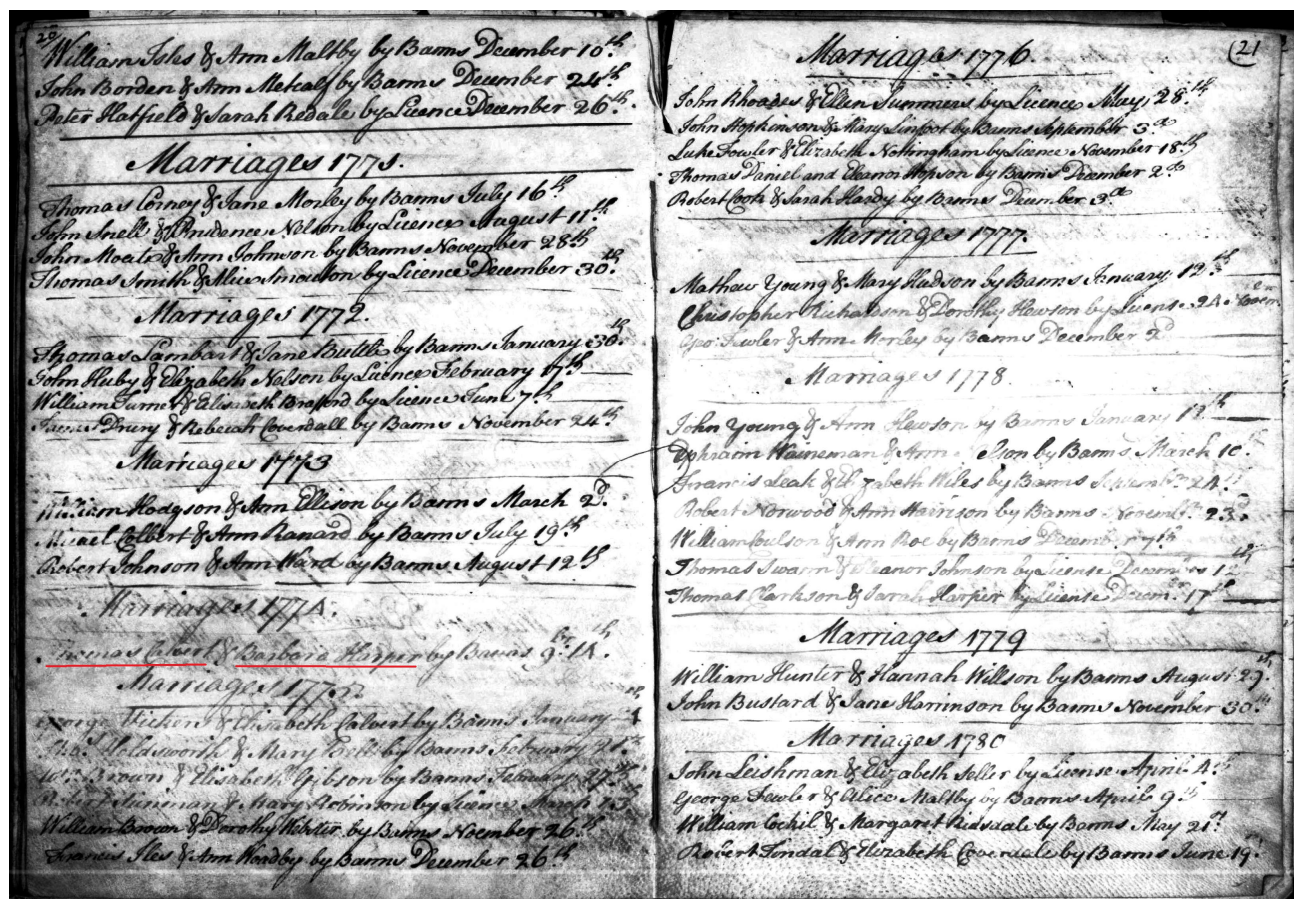 20
William Isles & Ann Maltby by Banns December 10th
John Borden & Ann Metcalf by Banns December 24th
Peter Hatfield & Sarah Redale by Licence December 26th
Marriages 1771.
Thomas Corney & Jane Morley by Banns July 16th
John Snell & Prudence Nelson by Licence August 11th
John Moat & Ann Johnson by Banns November 28th
Thomas Smith & Alice by Licence December 30th
Marriages 1772.
Thomas Lambart & Jane Buttle by Banns January 30th
John Huby & Elizabeth Nelson by Licence February 17th
William Turner & Elisabeth by Licence June 7th
Drury & Rebecah Coverdall by Banns November 24th
Marriages 1773
William Hodgson & Ann Ellison by Banns March 2d
Micael Colbert & Ann Ranard by Banns July 19th
Robert Johnson & Ann Ward by Banns August 12th
Marriages 1774.
Thomas Calvert & Barbara Harper by Banns 9br 14th
Marriages 1775.
George Vickers & Elizabeth Calvert by Banns January
Holdsworth & Mary by Banns February 21st
Brown & Elisabeth Gibson by Banns February 27th
Robert & Mary Robinson by Licence March
William Brown & Dorothy Webster by Banns November 26th
Francis Iles & Ann Woodby by Banns December 26th
21
Marriages 1776.
John Rhoades & Ellen Summers by Licence May 28th
John Hopkinson & Mary Linfoot by Banns September 3d
Luke Fowler & Elizabeth Nottingham by Licence November 18th
Thomas Daniel and Eleanor Hopson by Banns December 2d
Robert Cook & Sarah Hardy by Banns December 3d
Marriages 1777.
Mathew Young & Mary Hudson by Banns January 12th
Christopher Richardson & Dorothy Hewson by License 24 Novem
Geo: Fowler & Ann Morley by Banns December 2d
Marriages 1778.
John Young & Ann Hewson by Banns January 12th
Ephraim Waineman & Ann by Banns March 10
Francis Leak & Elizabeth Wiles by Banns Septembr 24th
Robert Norwood & Ann Harrison by Banns Novembr 23d
William Coulson & Ann Roe by Banns December 7th
Thomas Swann & Eleanor Johnson by License December 12th
Thomas Clarkson & Sarah Harper by License Decembr 17th
Marriages 1779
William Hunter & Hannah Willson by Banns August 29th
John Bustard & Jane Harrinson by Banns November 30th
Marriages 1780
John Leishman & Elizabeth Seller by License April 4th
George Fowler & Alice Maltby by Banns April 9th
William Cockil & Margaret Ridsdale by Banns May 21st
Robert Tindal & Elizabeth Coverdale by Banns June 19